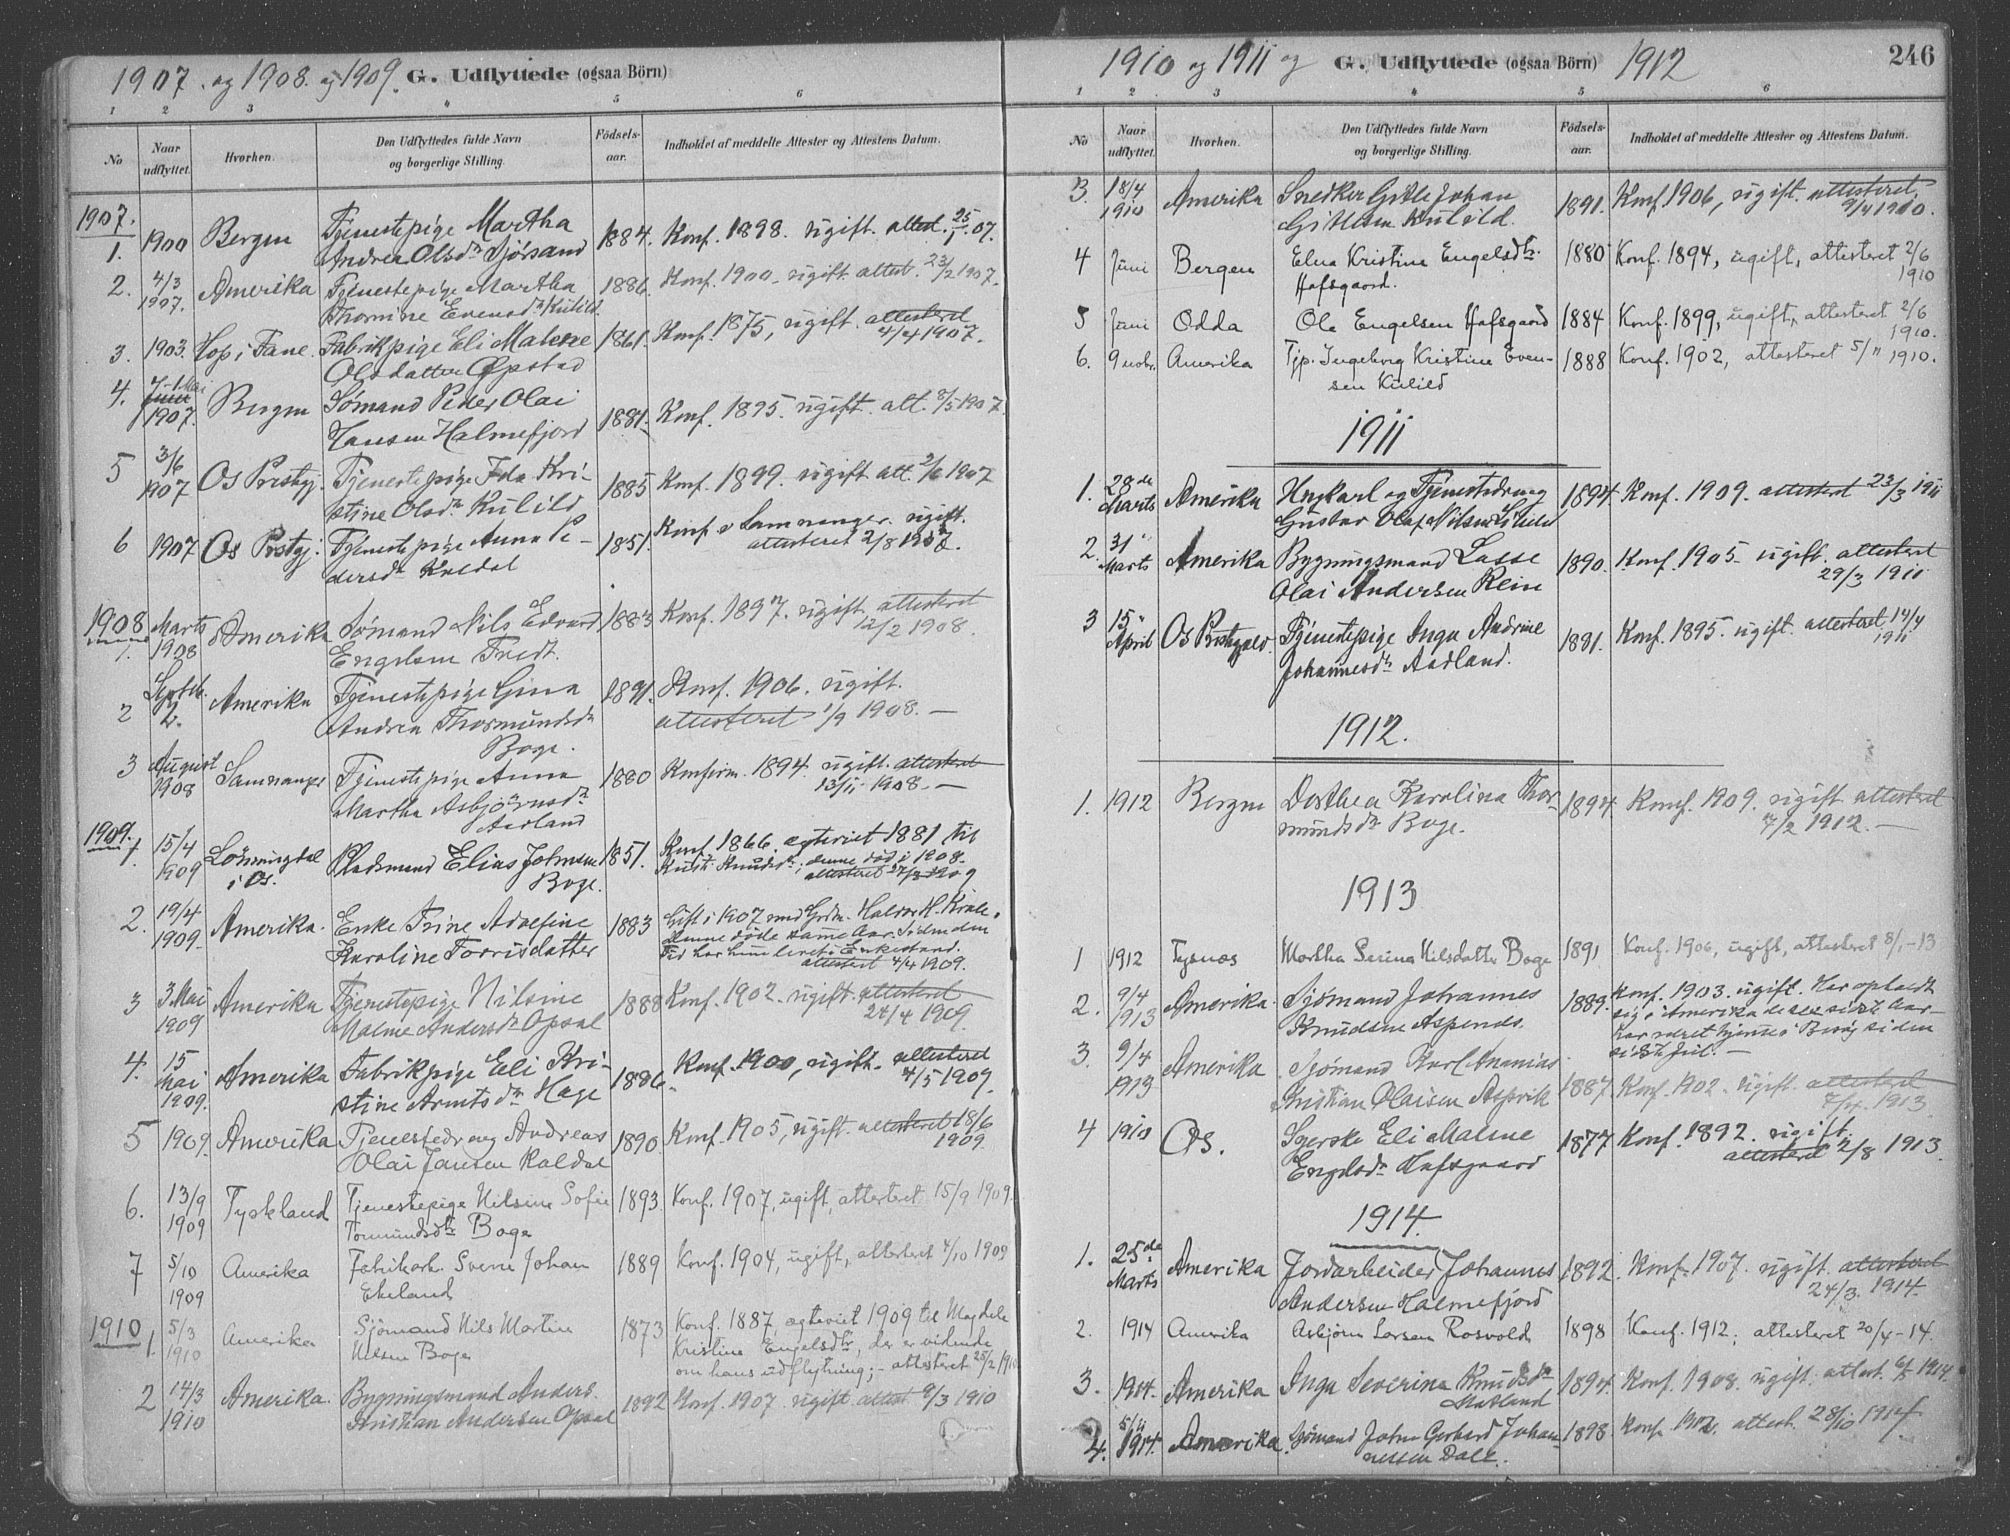 1907. og 1908. og 1909. G. Udflyttede (ogsaa Börn)
1 2 3 4 5 6
No
Naar udflyttet.
Hvorhen.
Den Udflyttedes fulde Navn
og borgerlige Stilling.
Födsels-
aar.
Indholdet af meddelte Attester og Attestens Datum.
1907.
1. 1900 Bergen Tjenestepige Martha 1884. Konf. 1898. ugift. attest. 25/1. 07.
Andrea Olsdr Sjørsand
2. 4/3 Amerika Tjenestepige Martha 1886. Konf. 1900. ugift. attest. 23/2 1907.
1907. Thomine Evensdr Kulild.
3. 1903. Hop i Fane. Fabrikpige Eli Malene 1861. Konf. 1875, ugift. attesteret
4/4 1907.
Olsdatter Øpstad
4. Mai
1907. Bergen Sømand Peder Olai 1881. Konf. 1895. ugift. att. 8/5 1907.
Hansen Halmefjord
5 3/6
1907 Os Prstgj. Tjenestepige Ida Kri- 1885 Konf. 1899. ugift att. 2/6 1907
stine Olsdr Kulild
6 1907 Os Prstgj. Tjenestepige Anna Pe- 1851. Konf. i Samnanger. ugift.
attesteret 2/8 1907.
dersdr Kaldal
1908
1. Marts
1908 Amerika Sømand Nils Edvard 1883 Konf. 1897. ugift. attesteret
12/2 1908.
Engelsen Tvedt.
2 Septbr.
2. Amerika Tjenestepige Gina 1891. Konf. 1906. ugift.
attesteret 1/9 1908. —
Andrea Thormundsdr
Boge.
3 August
1908 Samnanger Tjenestepige Anna 1880 Konfirm. 1894. ugift. attesteret
13/11 1908. —
Martha Asbjørnsdr
Aarland
1909.
1. 15/4
1909 Lønningdal
i Os. Pladsmand Elias Johnsen 1851. Konf. 1866. egteviet 1881 til
Boge. Knudsdr; denne død i 1908.
attesteret 27/3 1909
2. 19/4
1909. Amerika. Enke Trine Adolfine 1883 Gift i 1907 med Halvor H.
Karoline Torrisdatter denne døde samme Aar. Siden den
Tid har hun levet i Enkestand.
attesteret 4/4 1909.
3 3 Mai
1909 Amerika Tjenestepige Nilsine 1888 Konf. 1902. ugift. attesteret
24/4 1909.
Malene Andersdr Opsal
4. 15
Mai
1909. Amerika Fabrikpige Eli Kri- 1886. Konf. 1900, ugift. attesteret
4/5 1909.
stine Arntsdr Hage
5 1909. Amerika Tjenestedreng Andreas 1890. Konf. 1905, ugift. attesteret 18/6
1909.
Olai Jansen Kaldal
6. 13/9
1909 Tyskland Tjenestepige Nilsine Sofie 1893. Konf. 1907, ugift, attesteret 15/9 1909.
Tormundsdtr Boge
7 5/10
1909 Amerika Fabrikarb. Sverre Johan 1889 Konf. 1904, ugift, attesteret 4/10 1909
Ekeland
1910
1. 5/3
1910 Amerika Sjömand Nils Martin 1873 Konf. 1887 egteviet 1909 til Magdele
Nilsen Boge Kristine Engelsdtr, der er vidende
om hans udflytning; - attesteret 25/2 1910
2 14/3
1910 Amerika. Bygningsmand Anders 1892 Konf. 1907 ugift attest 9/3 1910
Kristian Andersen Opsal
1910 og 1911 og G. Udflyttede (ogsaa Börn) 1912 246
1 2 3 4 5 6
No
Naar
udflyttet.
Hvorhen.
Den Udflyttedes fulde Navn
og borgerlige Stilling.
Födsels-
aar.
Indholdet af meddelte Attester og Attestens Datum.
3. 18/4
1910 Amerika Snedker Gitle Johan 1891. Konf. 1906, ugift. attesteret
9/4 1910.
Gitlesen Kulild.
4 Juni Bergen Elna Kristine Engelsdtr. 1880 Konf. 1894, ugift, attesteret 2/6
1910
Hafsgaard.
5 Juni Odda Ole Engelsen Hafsgaard 1884 Konf. 1899, ugift, attesteret 2/6
1910.
6. 9 novbr. Amerika Tjp. Ingeborg Kristine Even- 1888 Konf. 1902, attesteret 5/11 1910.
sen Kulild
1911
1. 29de
Marts Amerika Ungkarl og Tjenestedreng 1894. Konf. 1909. attesteret 23/3 1911
Gustav Olaf Nilsen
2. 31"
Marts Amerika Bygningsmand Lasse 1890. Konf. 1905. ugift. attesteret
29/3 1911
Olai Andersen Rein
3 15"
April Os Prstgjeld. Tjenestepige Inga Andrine 1881. Konf. 1895. ugift. attesteret 14/4
1911
Johannesdr Aadland.
1912.
1. 1912 Bergen Dorthea Karolina Thor- 1894. Konf. 1909. ugift attesteret
7/2 1912. —
mundsdr Boge.
1913
1 1912 Tysnes Martha Serina Nilsdatter Boge 1891 Konf. 1906, ugift, attesteret 8/1-13
2. 9/4
1913 Amerika. Sjömand Johannes 1889. Konf. 1903. ugift. Har opholdt
Knudsen Aspends. sig i Amerika de sidste Aar
har været hjemme siden
sidste Jul. —
3. 9/4
1913 Amerika Sjömand Karl Ananias
Kristian Olaisen Aspvik 1887 Konf. 1902. ugift. attesteret
7/4. 1913
4 1910 Os. Syerske Eli Malene 1877 Konf. 1892. ugift.
attesteret 2/8 1913.
Engelsdr Hafsgaard
1914.
1. 25de
Marts Amerika Jordarbeider Johannes 1892. Konf. 1907. ugift. attesteret
24/3. 1914.
Andersen Halmefjord
2. 1914 Amerika Asbjörn Larsen Rosvold 1898 Konf. 1912, attesteret 20/4-14.
3. 1914. Amerika Inga Severina Knudsdr 1894. Konf. 1908. ugift. attest. 1914.
4. 5/11
1914. Amerika. Sjömand John Gerhard Johan- 1898 Konf. 1912, attest. 28/10 1914.
nessen Dale.